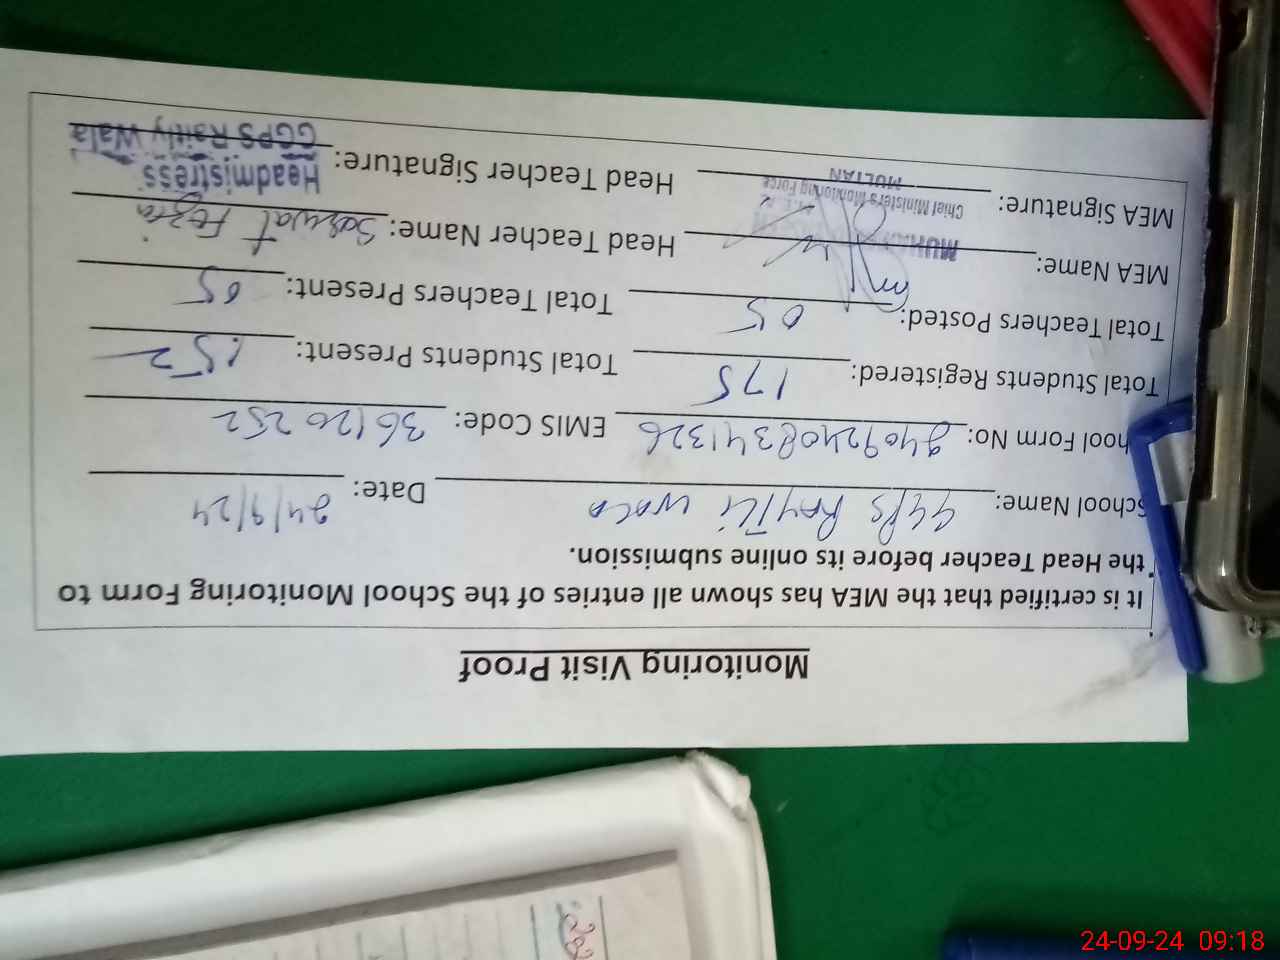 Monitoring Visit Proof
It is certified that the MEA has shown all entries of the School Monitoring Form to
the Head Teacher before its online submission.
School Name: GGPS Raytli wala Date: 24/9/24
hool Form No: 24092408341326 EMIS Code: 36120252
Total Students Registered: 175 Total Students Present: 152
Total Teachers Posted: 05 Total Teachers Present: 05
MEA Name: Head Teacher Name: Sarwat Fozia
MEA Signature: Head Teacher Signature:
Chief Minister's Monitoring Force
MULTAN
Headmistress
GGPS Raitly Wala
24-09-24 09:18